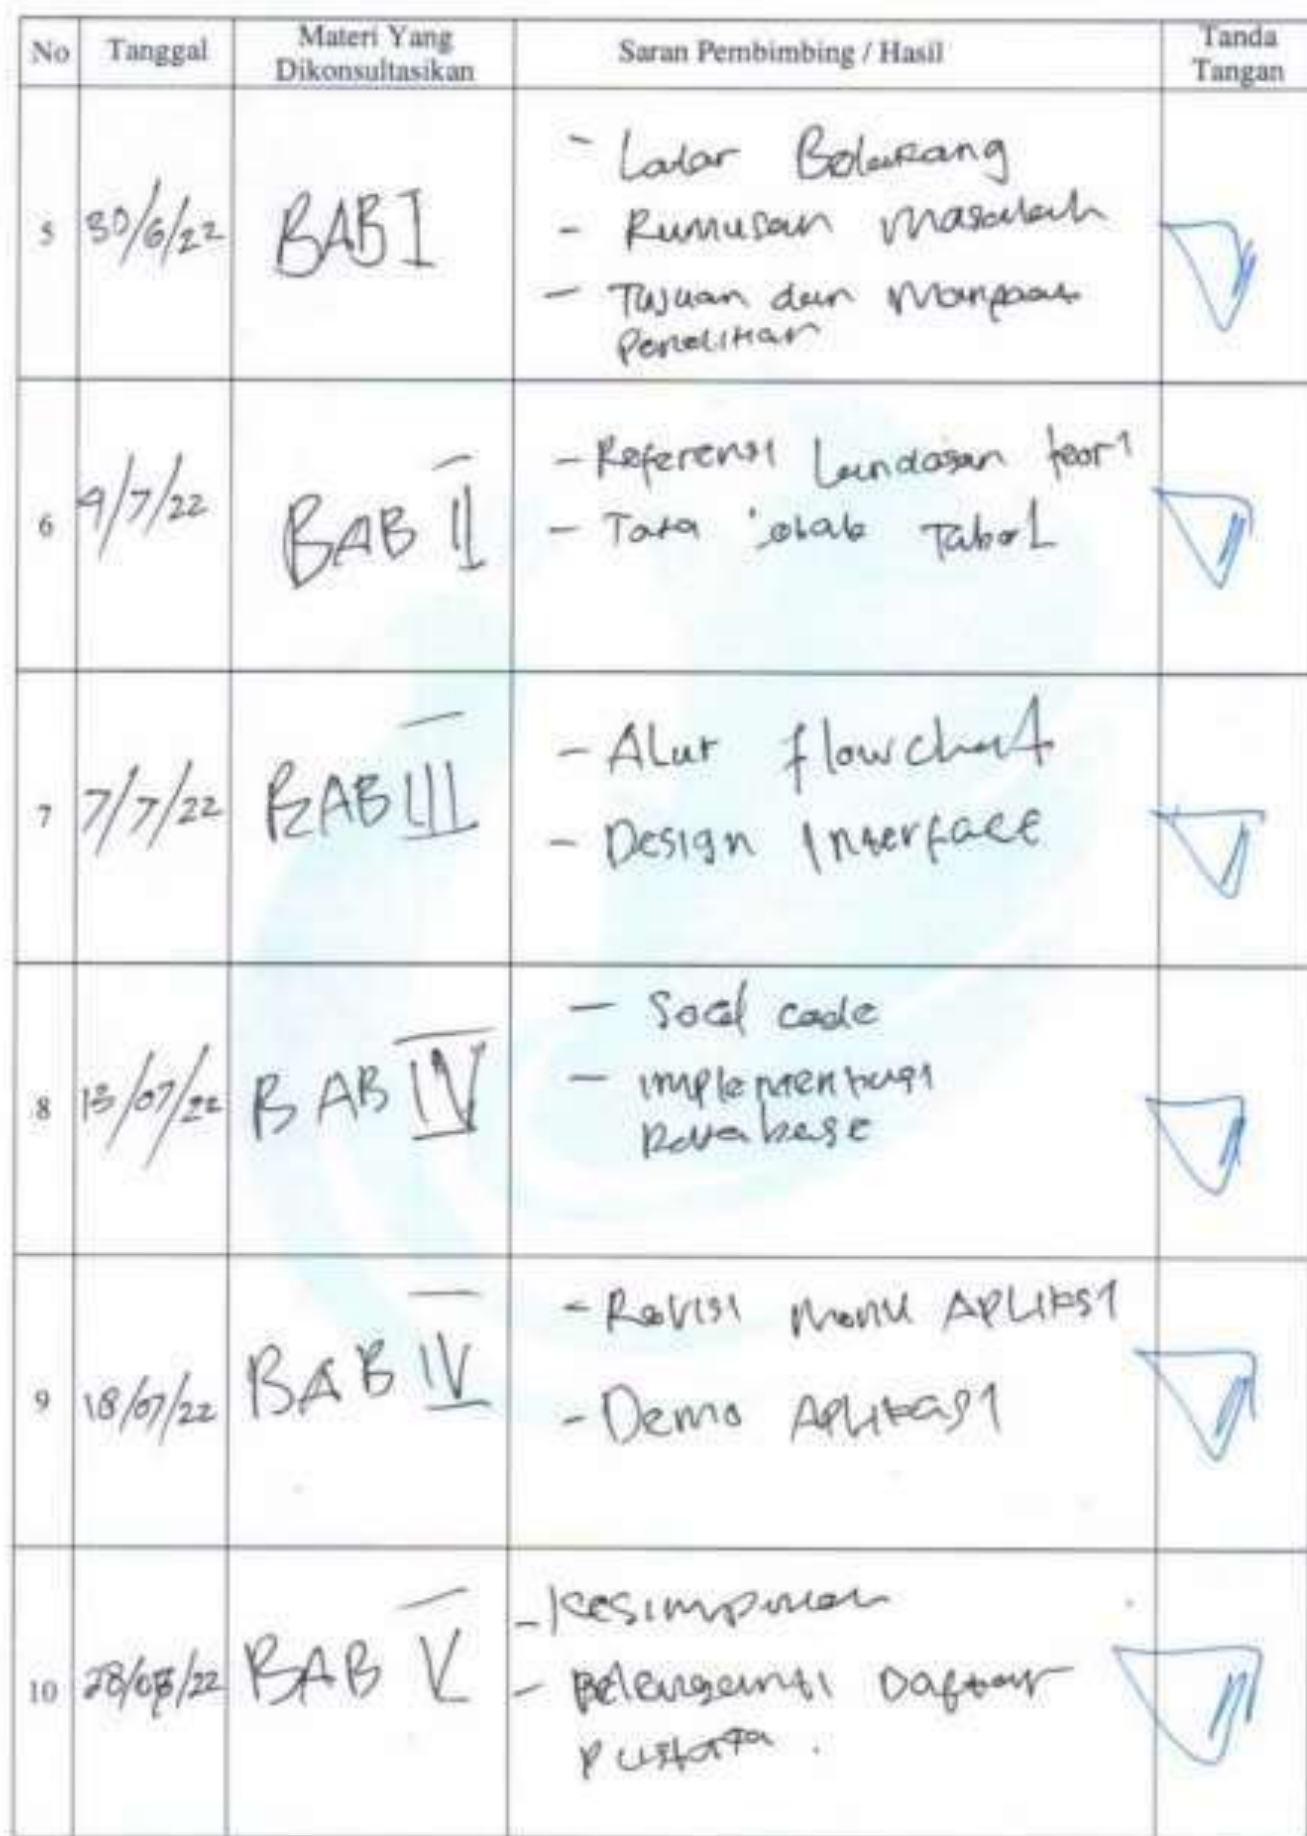 No Tanggal Materi Yang Dikonsultasikan Saran Pembimbing / Hasil Tanda Tangan
5 30/6/22 BAB I - Latar Belakang
- Rumusan Masalah
- Tujuan dan Manfaat
Penelitian
6 4/7/22 BAB II - Referensi Landasan teori
- Tata Tabel
7 7/7/22 BAB III - Alur flowchart
- Design Interface
8 13/07/22 BAB IV - code
- implementasi
Database
9 18/07/22 BAB IV - Revisi Menu Aplikasi
- Demo Aplikasi
10 28/07/22 BAB V - Kesimpulan
- Daftar
Pustaka.